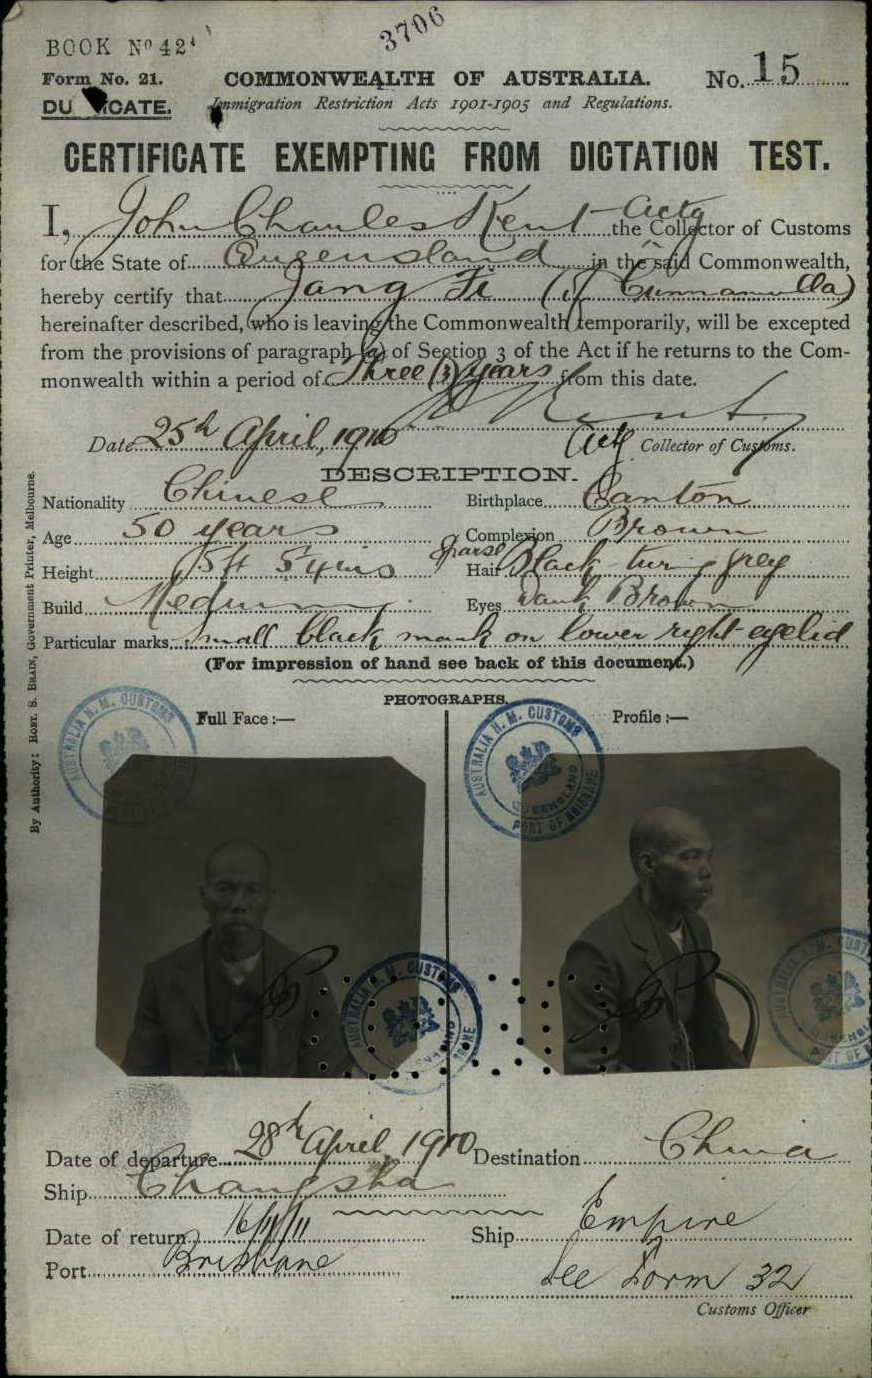 3706
BOOK No 42
Form No. 21. COMMONWEALTH OF AUSTRALIA. No. 15
DU ICATE. Immigration Restriction Acts 1901-1905 and Regulations.
CERTIFICATE EXEMPTING FROM DICTATION TEST.
I, John Charles Kent Actg the Collector of Customs
for the State of Queensland in the said Commonwealth,
hereby certify that Jang Fi (of Cunnamulla)
hereinafter described, who is leaving the Commonwealth temporarily, will be excepted
from the provisions of paragraph (a) of Section 3 of the Act if he returns to the Com-
monwealth within a period of Three (3) years from this date.
J Kent.
Date 25th April, 1910 Actg Collector of Customs.
DESCRIPTION.
Nationality Chinese Birthplace Canton
Age 50 years Complexion Brown
Height 5ft 5¼ins Hair sparse Black turng grey
Build Medium Eyes Dark Brown
Particular marks small black mark on lower right eyelid
(For impression of hand see back of this document.)
PHOTOGRAPHS.
Full Face :— Profile :—
By Authority: ROBT. S. BRAIN, Government Printer, Melbourne.
AUSTRALIA H. M. CUSTOMS
AUSTRALIA H. M. CUSTOMS QUEENSLAND PORT OF BRISBANE
Date of departure 28th April, 1910 Destination China
Ship Changsha
Date of return 16/11/11 Ship Empire
Port Brisbane See Form 32
Customs Officer